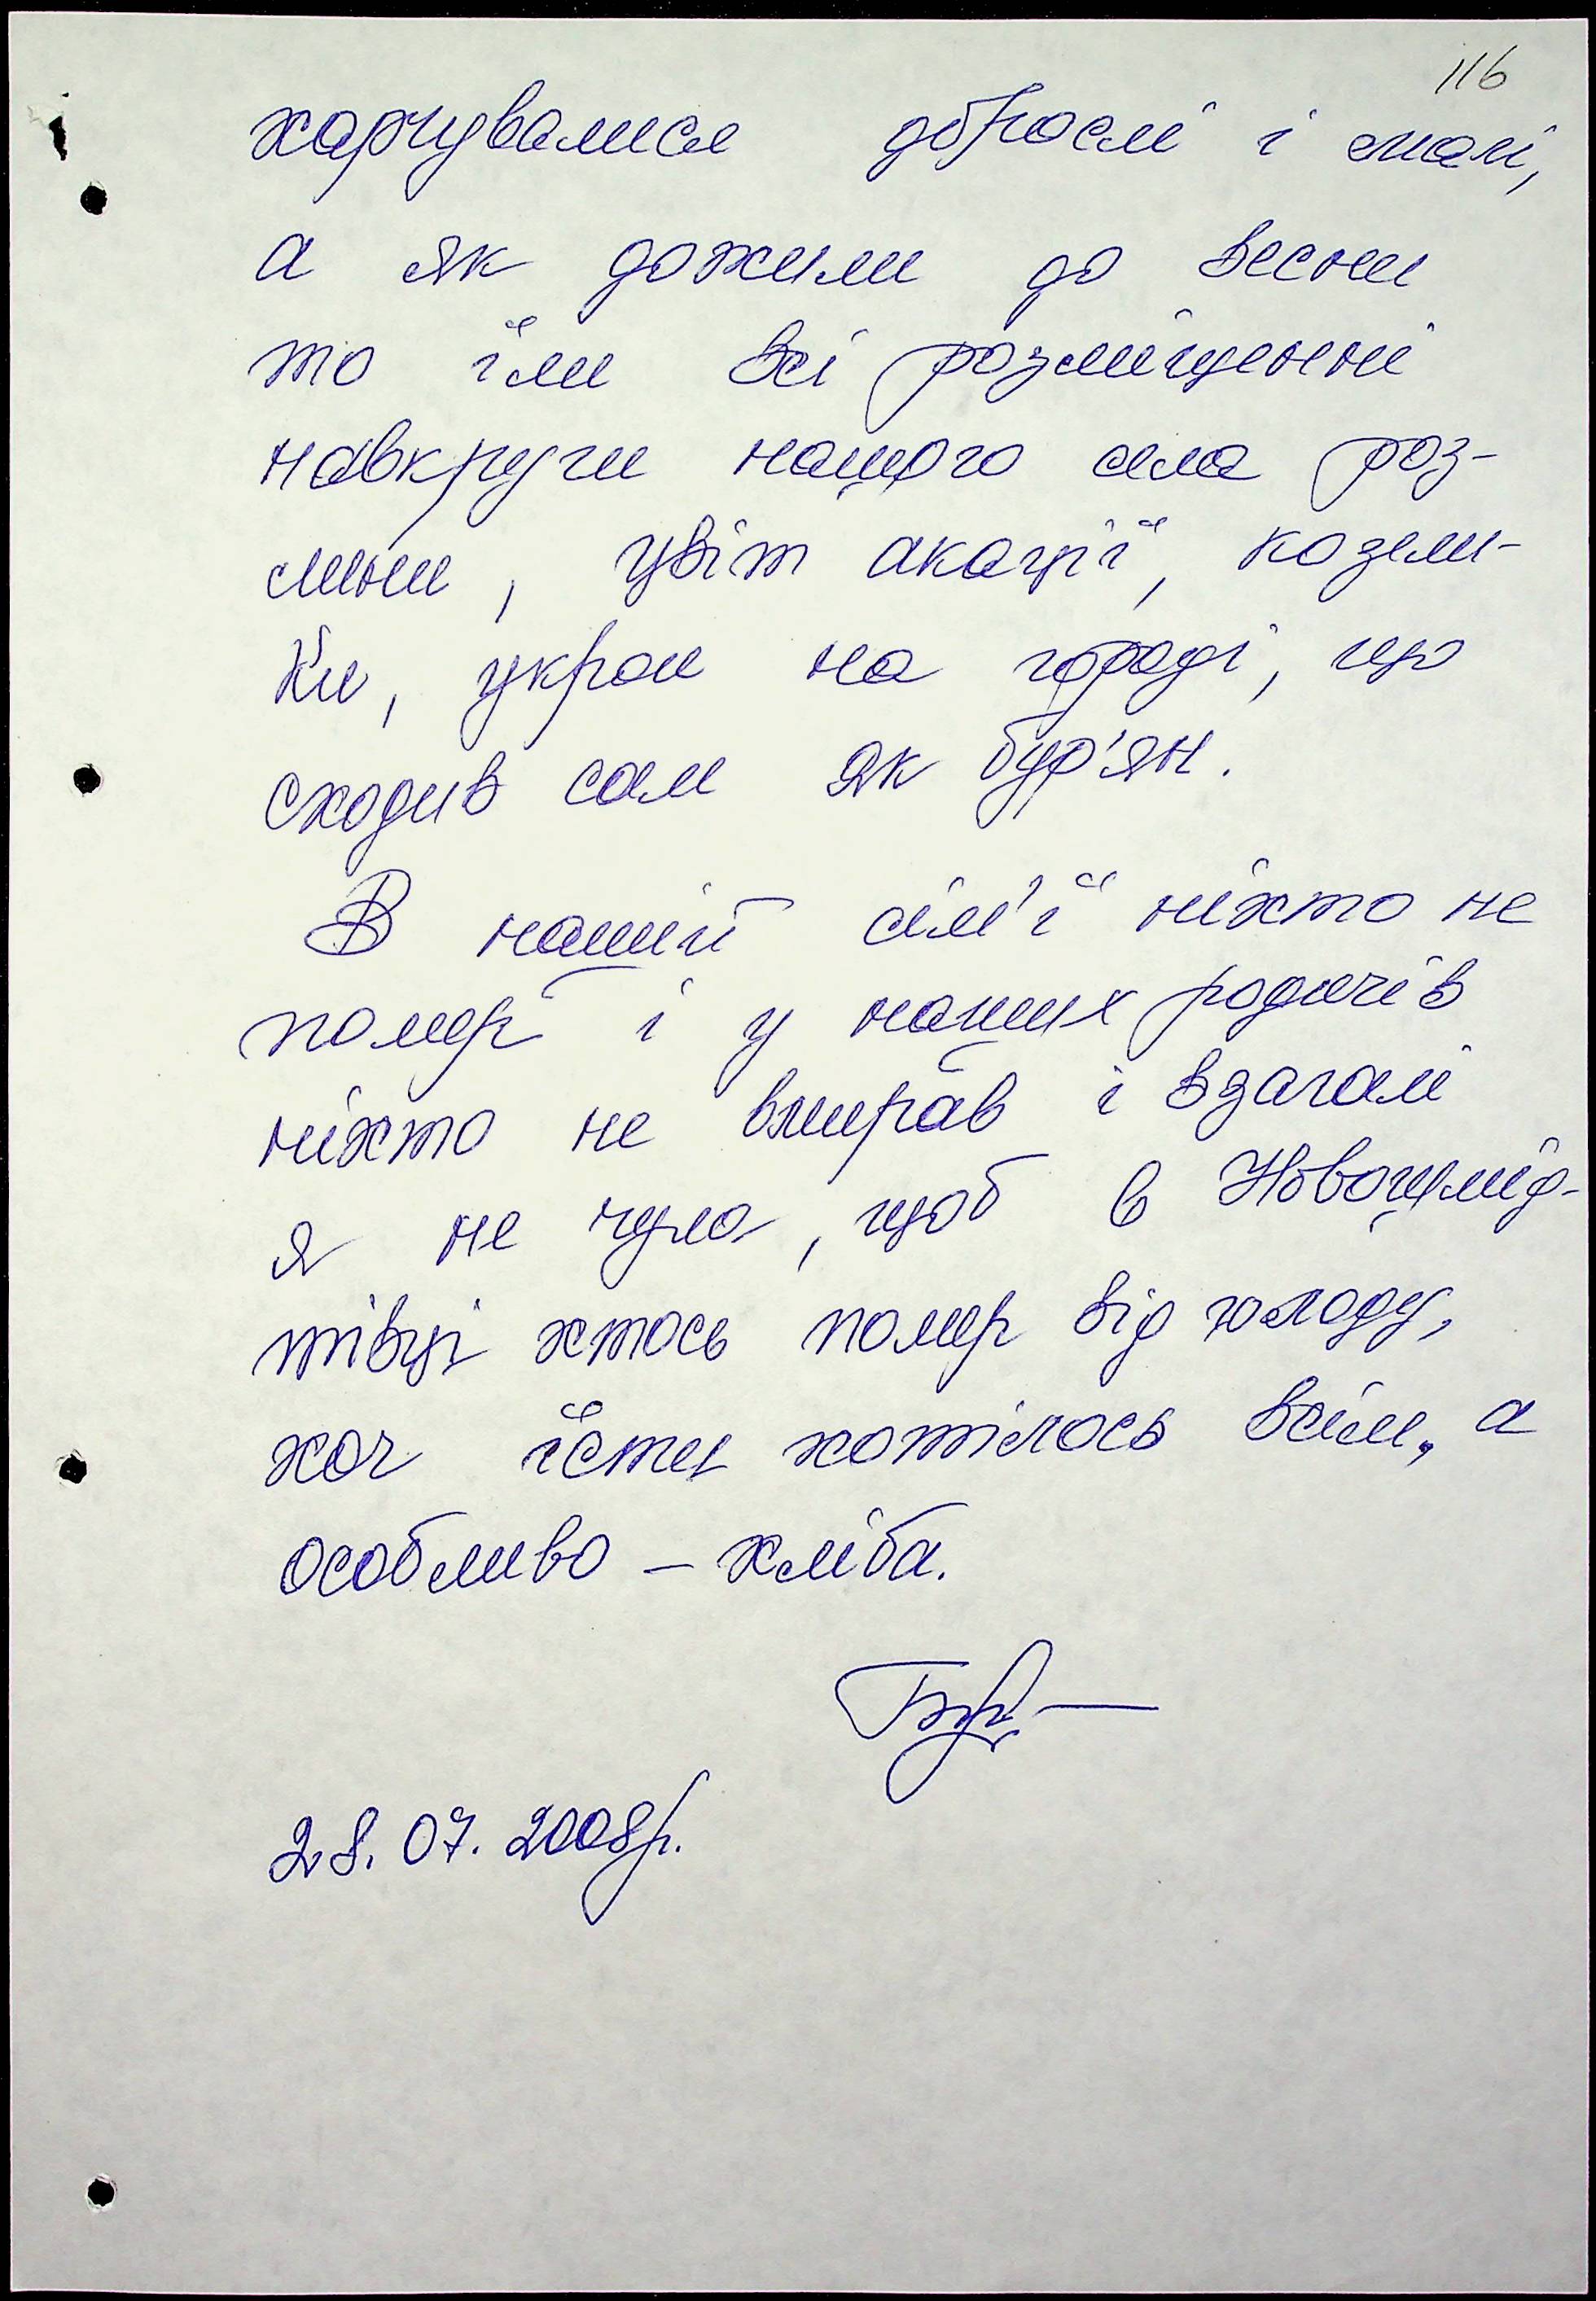 116
харчувалися дорослі і малі,
а як дожили до весни
то їли всі розміщенні
навкруги нашого села рос-
лини, цвіт акації, козели-
ки, укроп на городі, що
сходив сам як бур'ян.
В нашій сім'ї ніхто не
помер і у наших родичів
ніхто не вмирав і взагалі
я не чула, щоб в Новошмід-
тівці хтось помер від голоду,
хоч їсти хотілось всім, а
особливо – хліба.
28.07.2008р.